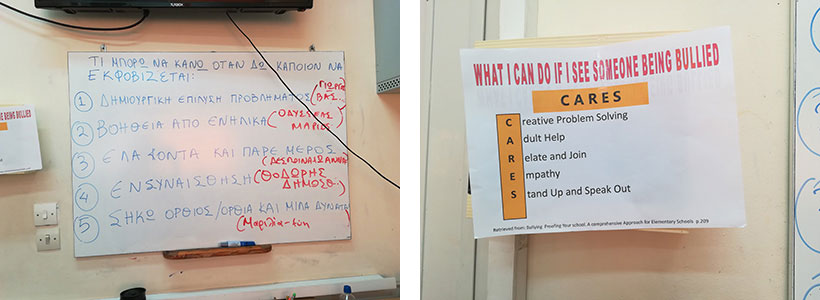 ΤΙ ΜΠΟΡΩ ΝΑ ΚΑΝΩ ΟΤΑΝ ΔΩ ΚΑΠΟΙΟΝ ΝΑ
ΕΚΦΟΒΙΖΕΤΑΙ:
① ΔΗΜΙΟΥΡΓΙΚΗ ΕΠΙΛΥΣΗ ΠΡΟΒΛΗΜΑΤΟΣ
② ΒΟΗΘΕΙΑ ΑΠΟ ΕΝΗΛΙΚΑ (ΟΔΥΣΣΕΑΣ
ΜΑΡΙΟΣ
③ ΕΛΑ ΚΟΝΤΑ ΚΑΙ ΠΑΡΕ ΜΕΡΟΣ
④ ΕΝΣΥΝΑΙΣΘΗΣΗ (ΘΟΔΩΡΗΣ
⑤ ΣΗΚΩ ΟΡΘΙΟΣ/ΟΡΘΙΑ ΚΑΙ ΜΙΛΑ ΔΥΝΑΤΑ
E BEING BULLIED
WHAT I CAN DO IF I SEE SOMEONE BEING BULLIED
CARES
Creative Problem Solving
Adult Help
Relate and Join
Empathy
Stand Up and Speak Out
Retrieved from: Bullying Proofing Your school. A comprehensive Approach for Elementary Schools p.209